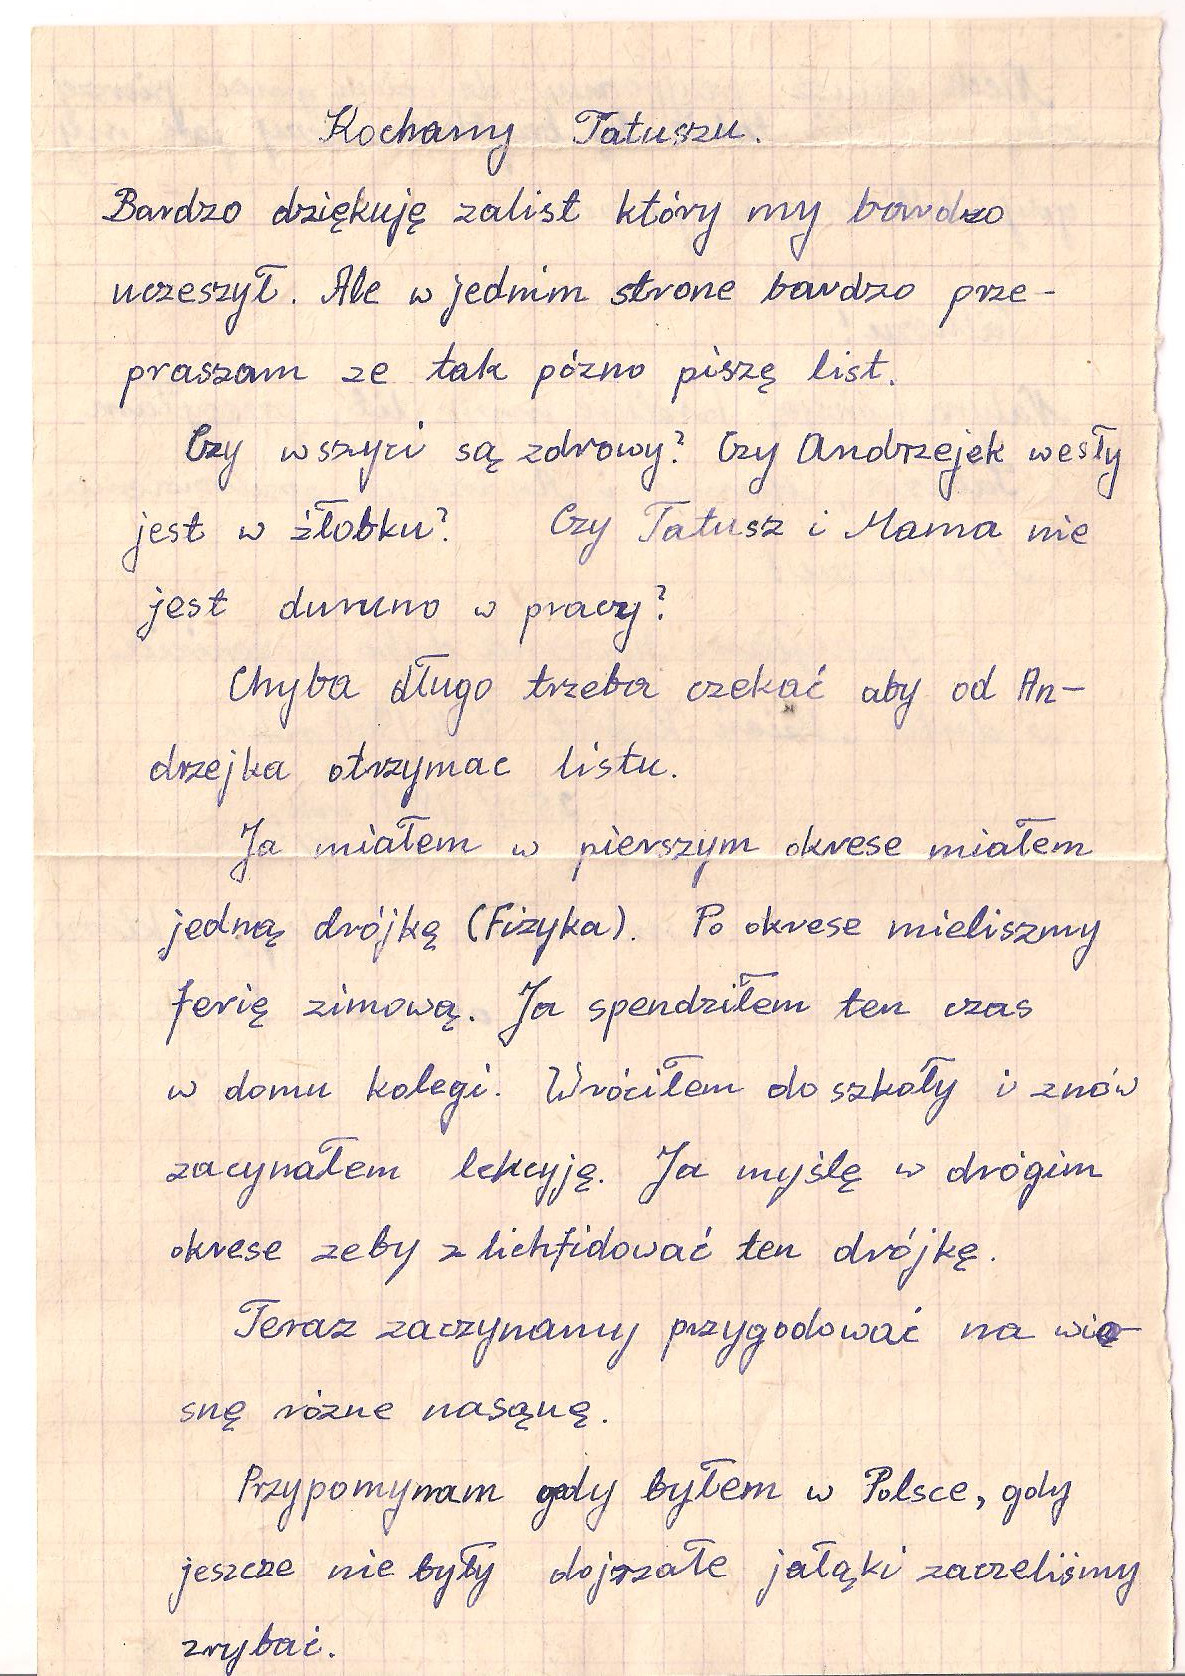 Kochamy Tatuszu.
Bardzo dziękuję zalist który my bardzo
uczeszył. Ale w jednim strone bardzo prze-
praszam ze tak pózno piszę list.
Czy wszyci są zdrowy? Czy Andrzejek wesły
jest w żłobku? Czy Tatusz i Mama nie
jest dumno w pracy?
Chyba długo trzeba czekać aby od An-
drzejka otrzymac listu.
Ja miałem w pierszym okrese miałem
jedną drójkę (Fizyka). Po okrese mieliszmy
ferię zimową. Ja spendziłem ten czas
w domu kolegi. Wróciłem do szkoły i znów
zacynałem lekcyję. Ja myślę w drógim
okrese zeby zlichfidować ten drójkę.
Teraz zaczynamy przygodować na wio-
snę rózne nasąnę.
Przypomynam gdy byłem w Polsce, gdy
jeszcze nie były dojrzałe jałąki zaczeliśmy
zrybać.